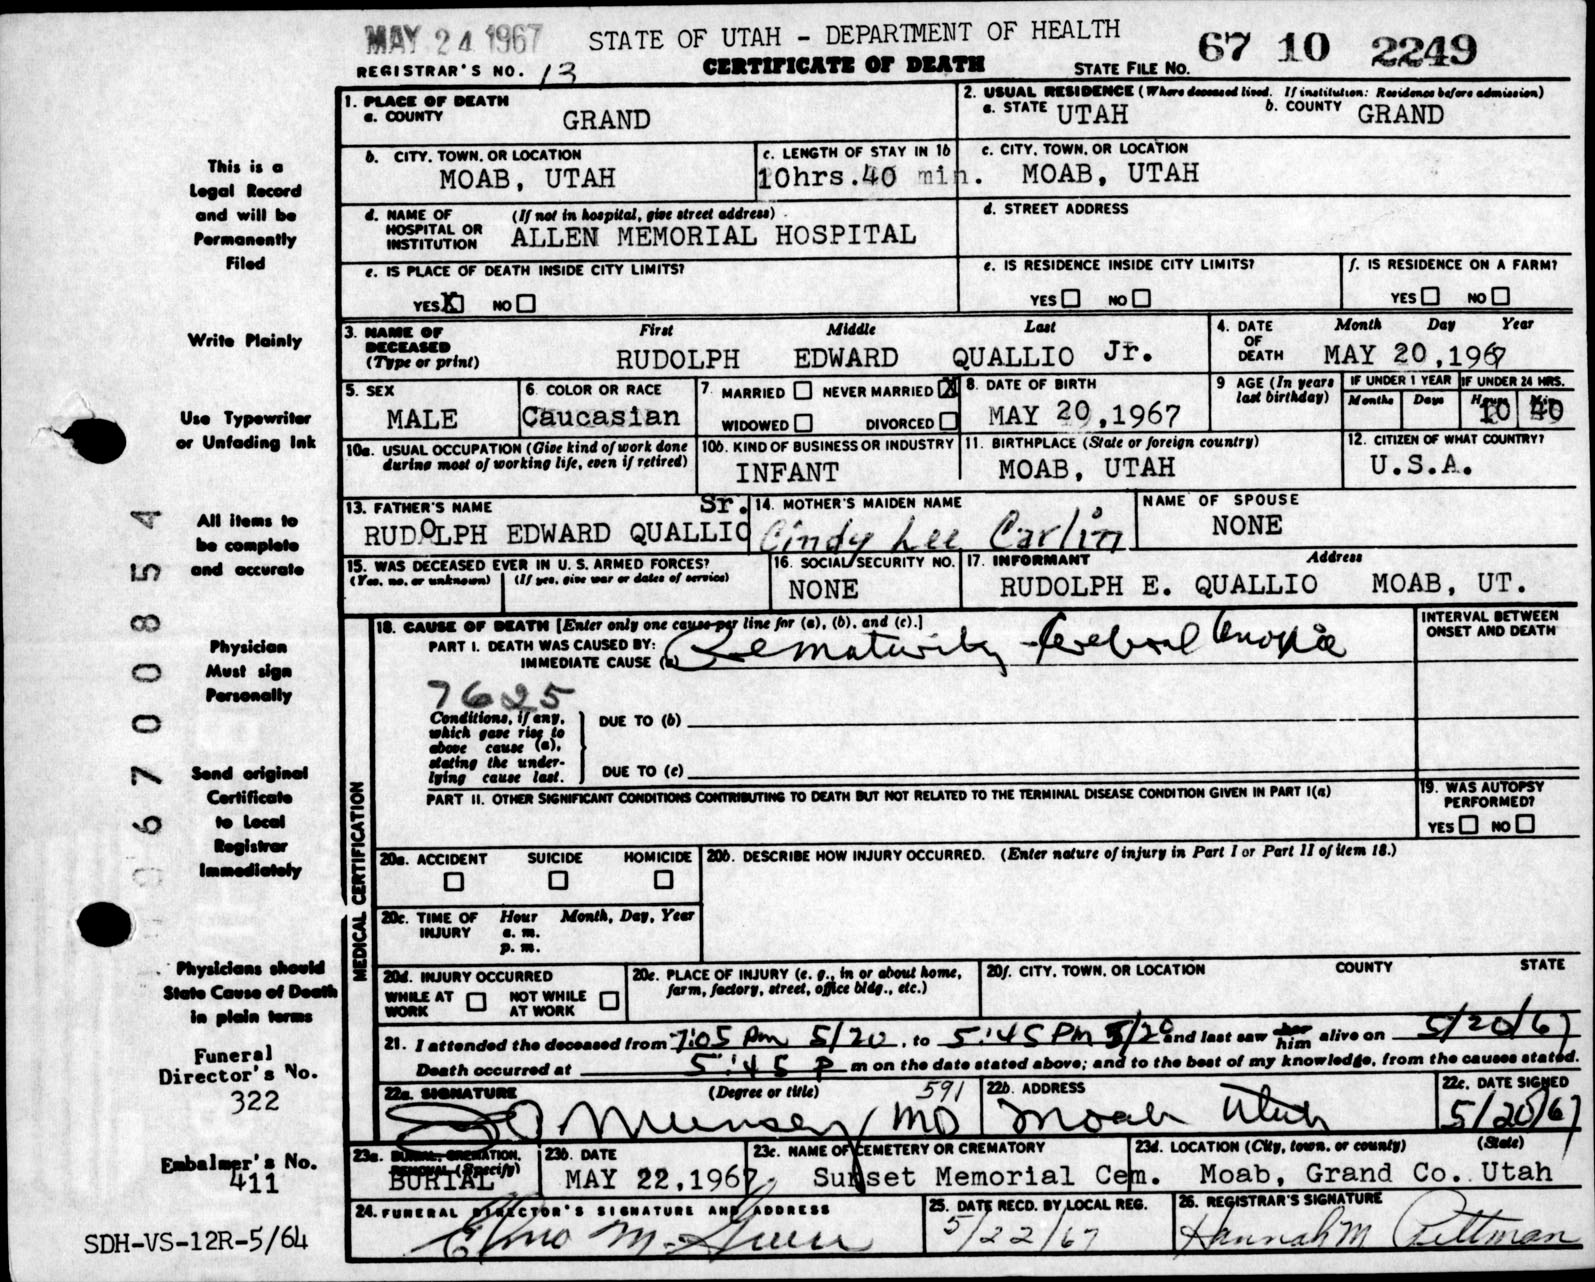 MAY 24 1967 STATE OF UTAH - DEPARTMENT OF HEALTH 67 10 2249
REGISTRAR'S NO. 13 CERTIFICATE OF DEATH STATE FILE NO.
1. PLACE OF DEATH
a. COUNTY GRAND
2. USUAL RESIDENCE (Where deceased lived. If institution: Residence before admission)
a. STATE UTAH b. COUNTY GRAND
b. CITY, TOWN, OR LOCATION
MOAB, UTAH
c. LENGTH OF STAY IN 1b
10hrs.40 min.
c. CITY, TOWN, OR LOCATION
MOAB, UTAH
d. NAME OF HOSPITAL OR INSTITUTION (If not in hospital, give street address)
ALLEN MEMORIAL HOSPITAL
d. STREET ADDRESS
e. IS PLACE OF DEATH INSIDE CITY LIMITS?
YES X NO
e. IS RESIDENCE INSIDE CITY LIMITS?
YES NO
f. IS RESIDENCE ON A FARM?
YES NO
3. NAME OF DECEASED (Type or print) First Middle Last
RUDOLPH EDWARD QUALLIO Jr.
4. DATE OF DEATH Month Day Year
MAY 20,1967
5. SEX
MALE
6. COLOR OR RACE
Caucasian
7. MARRIED NEVER MARRIED X
WIDOWED DIVORCED
8. DATE OF BIRTH
MAY 20,1967
9 AGE (In years last birthday)
IF UNDER 1 YEAR
Months Days
IF UNDER 24 HRS.
Hours Min.
10 40
10a. USUAL OCCUPATION (Give kind of work done during most of working life, even if retired)
10b. KIND OF BUSINESS OR INDUSTRY
INFANT
11. BIRTHPLACE (State or foreign country)
MOAB, UTAH
12. CITIZEN OF WHAT COUNTRY?
U.S.A.
13. FATHER'S NAME Sr.
RUDOLPH EDWARD QUALLIO
14. MOTHER'S MAIDEN NAME
Cindy Lee Carlin
NAME OF SPOUSE
NONE
15. WAS DECEASED EVER IN U. S. ARMED FORCES?
(Yes, no, or unknown) (If yes, give war or dates of service)
16. SOCIAL SECURITY NO.
NONE
17. INFORMANT Address
RUDOLPH E. QUALLIO MOAB, UT.
18. CAUSE OF DEATH [Enter only one cause per line for (a), (b), and (c).]
PART I. DEATH WAS CAUSED BY:
IMMEDIATE CAUSE (a) Prematurity - Cerebral Anoxia
INTERVAL BETWEEN ONSET AND DEATH
7625
Conditions, if any, which gave rise to above cause (a), stating the underlying cause last.
DUE TO (b)
DUE TO (c)
PART II. OTHER SIGNIFICANT CONDITIONS CONTRIBUTING TO DEATH BUT NOT RELATED TO THE TERMINAL DISEASE CONDITION GIVEN IN PART I(a)
19. WAS AUTOPSY PERFORMED?
YES NO
MEDICAL CERTIFICATION
20a. ACCIDENT SUICIDE HOMICIDE
20b. DESCRIBE HOW INJURY OCCURRED. (Enter nature of injury in Part I or Part II of item 18.)
20c. TIME OF INJURY Hour Month, Day, Year
a. m.
p. m.
20d. INJURY OCCURRED
WHILE AT WORK NOT WHILE AT WORK
20e. PLACE OF INJURY (e. g., in or about home, farm, factory, street, office bldg., etc.)
20f. CITY, TOWN, OR LOCATION COUNTY STATE
21. I attended the deceased from 7:05 Am 5/20, to 5:45 Pm 5/20 and last saw her him alive on 5/20/67
Death occurred at 5:45 P m on the date stated above; and to the best of my knowledge, from the causes stated.
22a. SIGNATURE (Degree or title) 591
Munsey MD
22b. ADDRESS
Moab Utah
22c. DATE SIGNED
5/20/67
23a. BURIAL, CREMATION, REMOVAL (Specify)
BURIAL
23b. DATE
MAY 22,1967
23c. NAME OF CEMETERY OR CREMATORY
Sunset Memorial Cem.
23d. LOCATION (City, town, or county) (State)
Moab, Grand Co. Utah
24. FUNERAL DIRECTOR'S SIGNATURE AND ADDRESS
25. DATE RECD. BY LOCAL REG.
5/22/67
26. REGISTRAR'S SIGNATURE
Hannah M Pittman
This is a
Legal Record
and will be
Permanently
Filed
Write Plainly
Use Typewriter
or Unfading Ink
All items to
be complete
and accurate
Physician
Must sign
Personally
Send original
Certificate
to Local
Registrar
Immediately
Physicians should
State Cause of Death
in plain terms
Funeral
Director's No.
322
Embalmer's No.
411
SDH-VS-12R-5/64
96700854